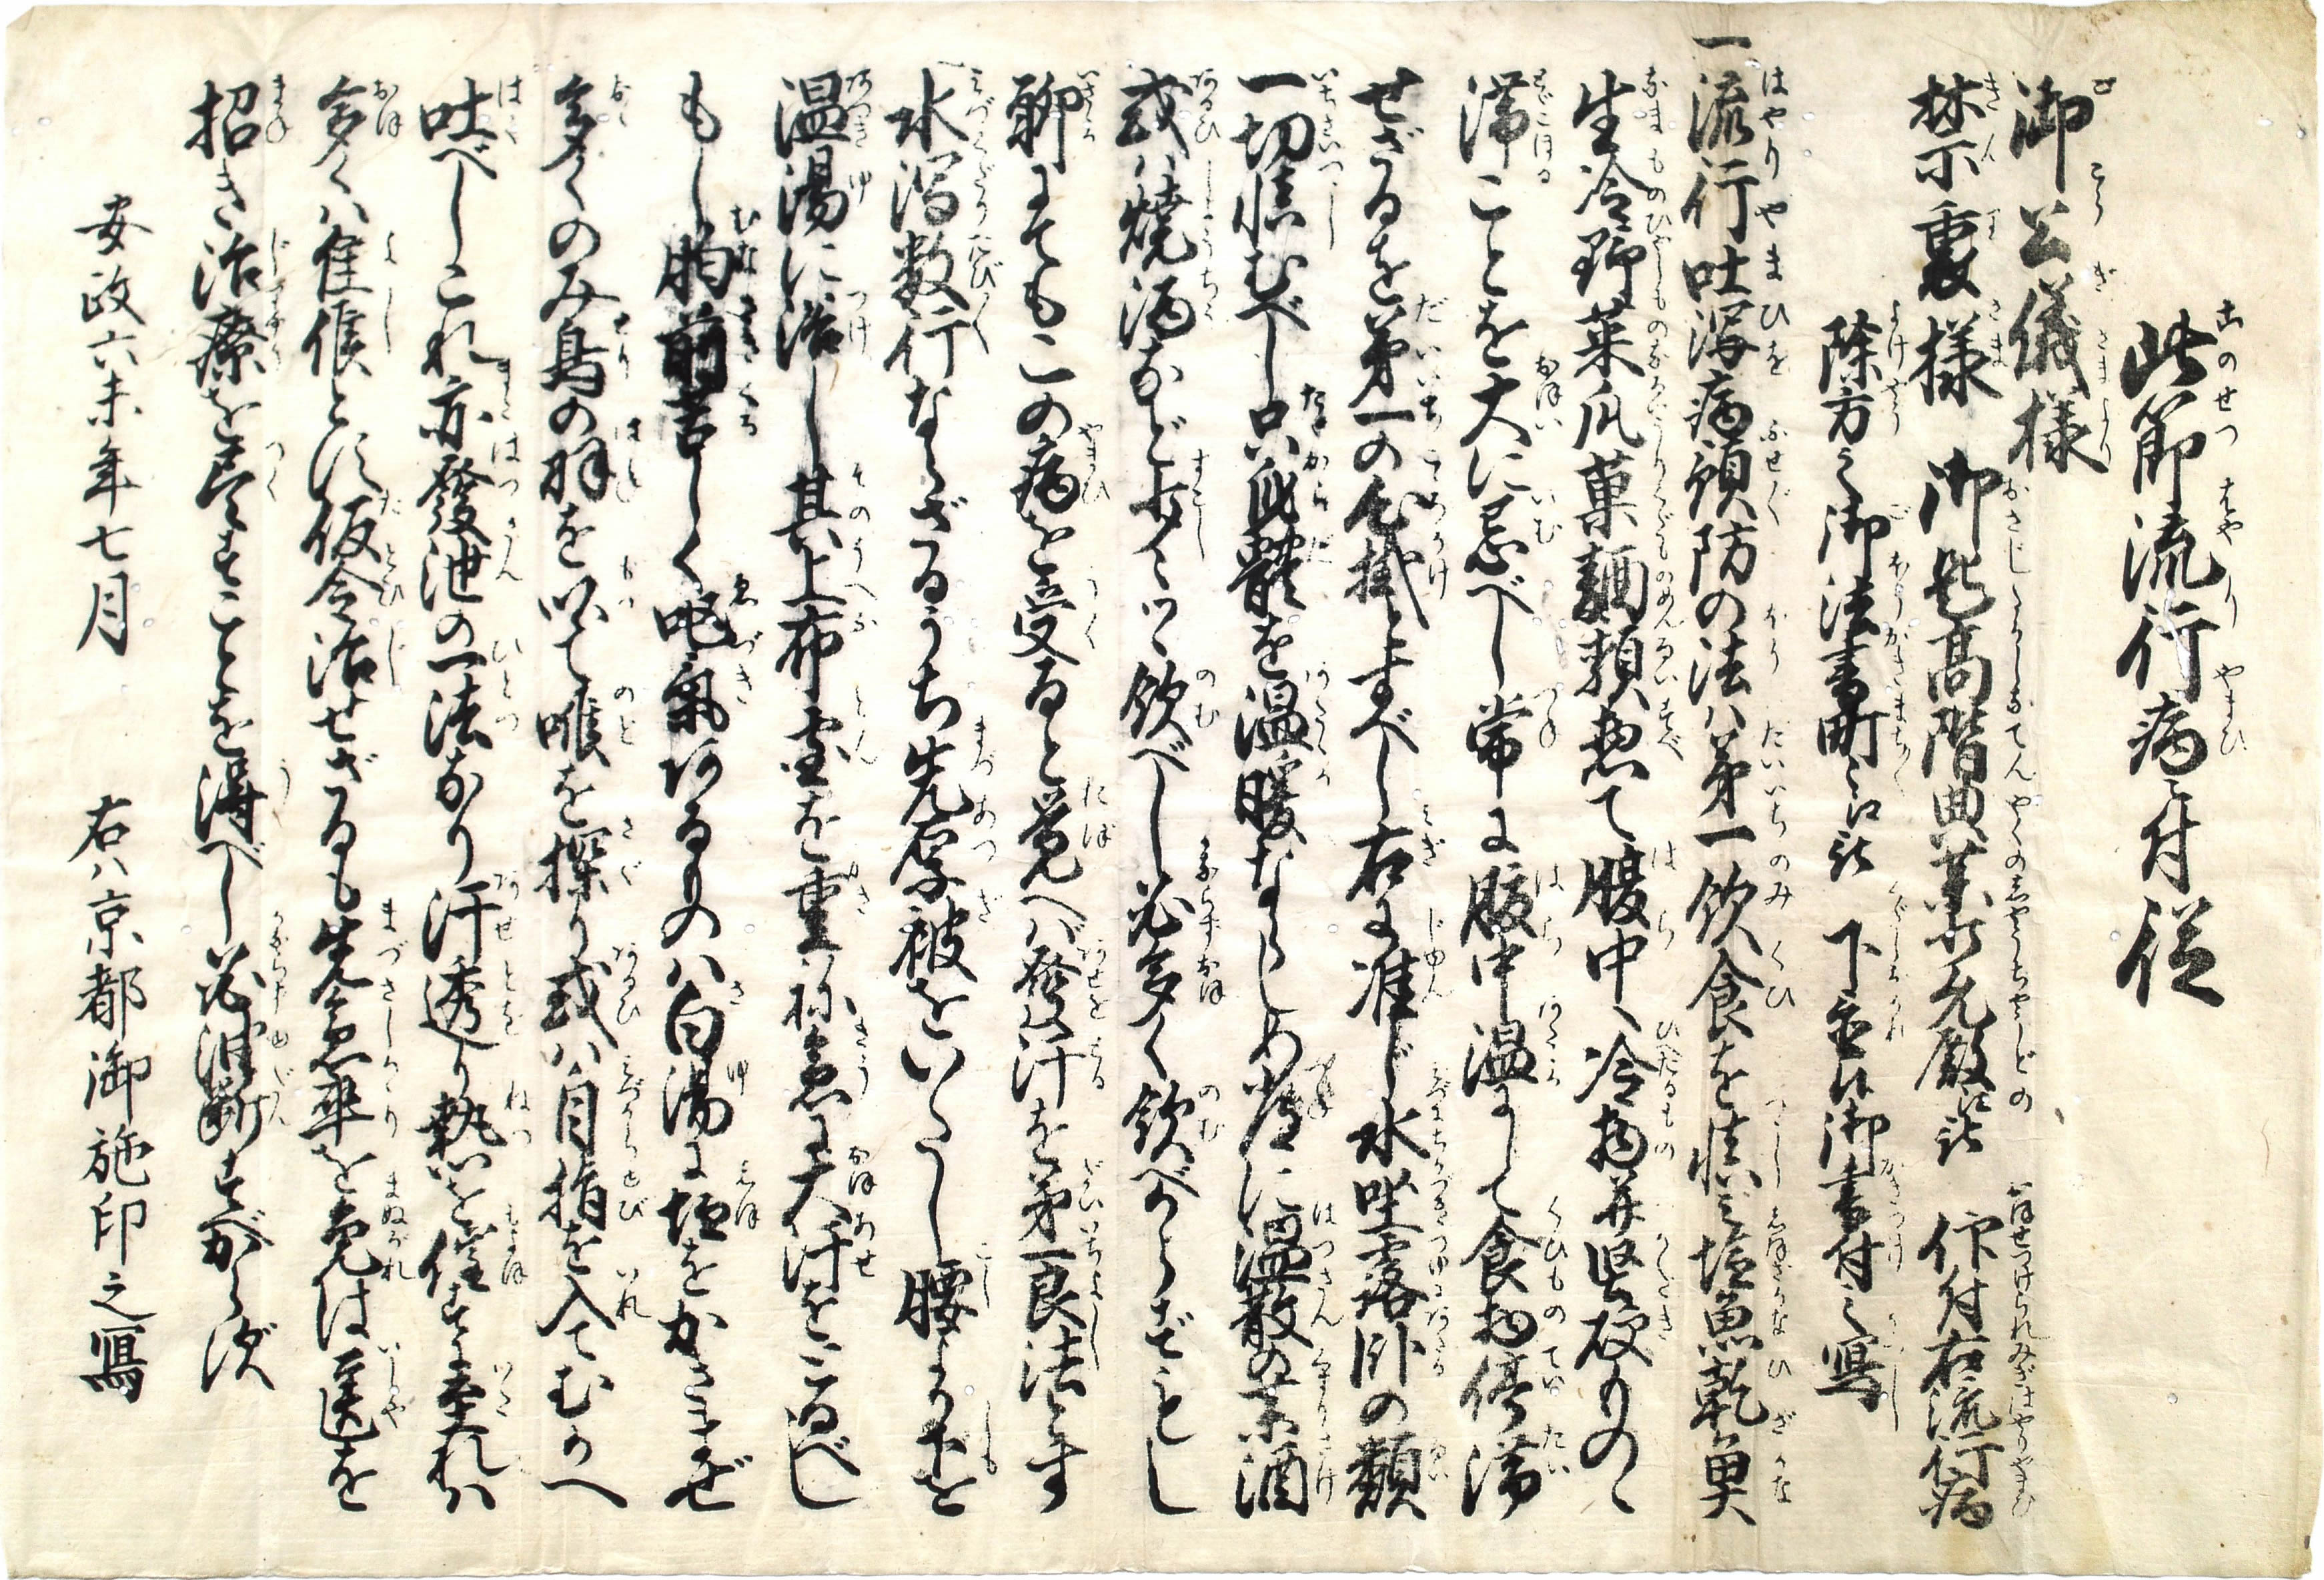 此節流行病ニ付従
御公儀様
禁裏様 御匙高階典薬少允殿江 仰付右流行病
除方之御法書町々江 下置候御書付之写
一流行吐瀉病預防の法ハ第一飲食を慎ミ塩魚乾魚
生冷野菜瓜菓麺類惣て腹中へ冷物并堅硬ものゝ
滞ことを大に忌べし常に腹中温にして食物停滞
せざるを第一の心掛とすべし右に准じ水坐露臥の類
一切慎むべし只身體を温暖ならしめ常に温散の薬酒
或ハ焼酒など少々ツヽ飲べし必多く飲べからずもし
聊にてもこの病を受ると覚へバ発汗を第一良法とす
水瀉数行ならざるうち先厚被をいたし腰より下を
温湯に浴し其上布団を重ね急に大汗をとるべし
もし胸前苦しく吐氣あるものハ白湯に塩をかきまぜ
多くのみ鳥の羽を以て喉を探り或ハ自指を入てむかへ
吐べしこれ亦發泄の一法なり汗透り熱を催すに至れハ
多くハ佳候とす仮令治せざるも先急卒を免は医を
招き治療を尽すことを得べし必油断すべからず
安政六未年七月 右ハ京都御施印之寫